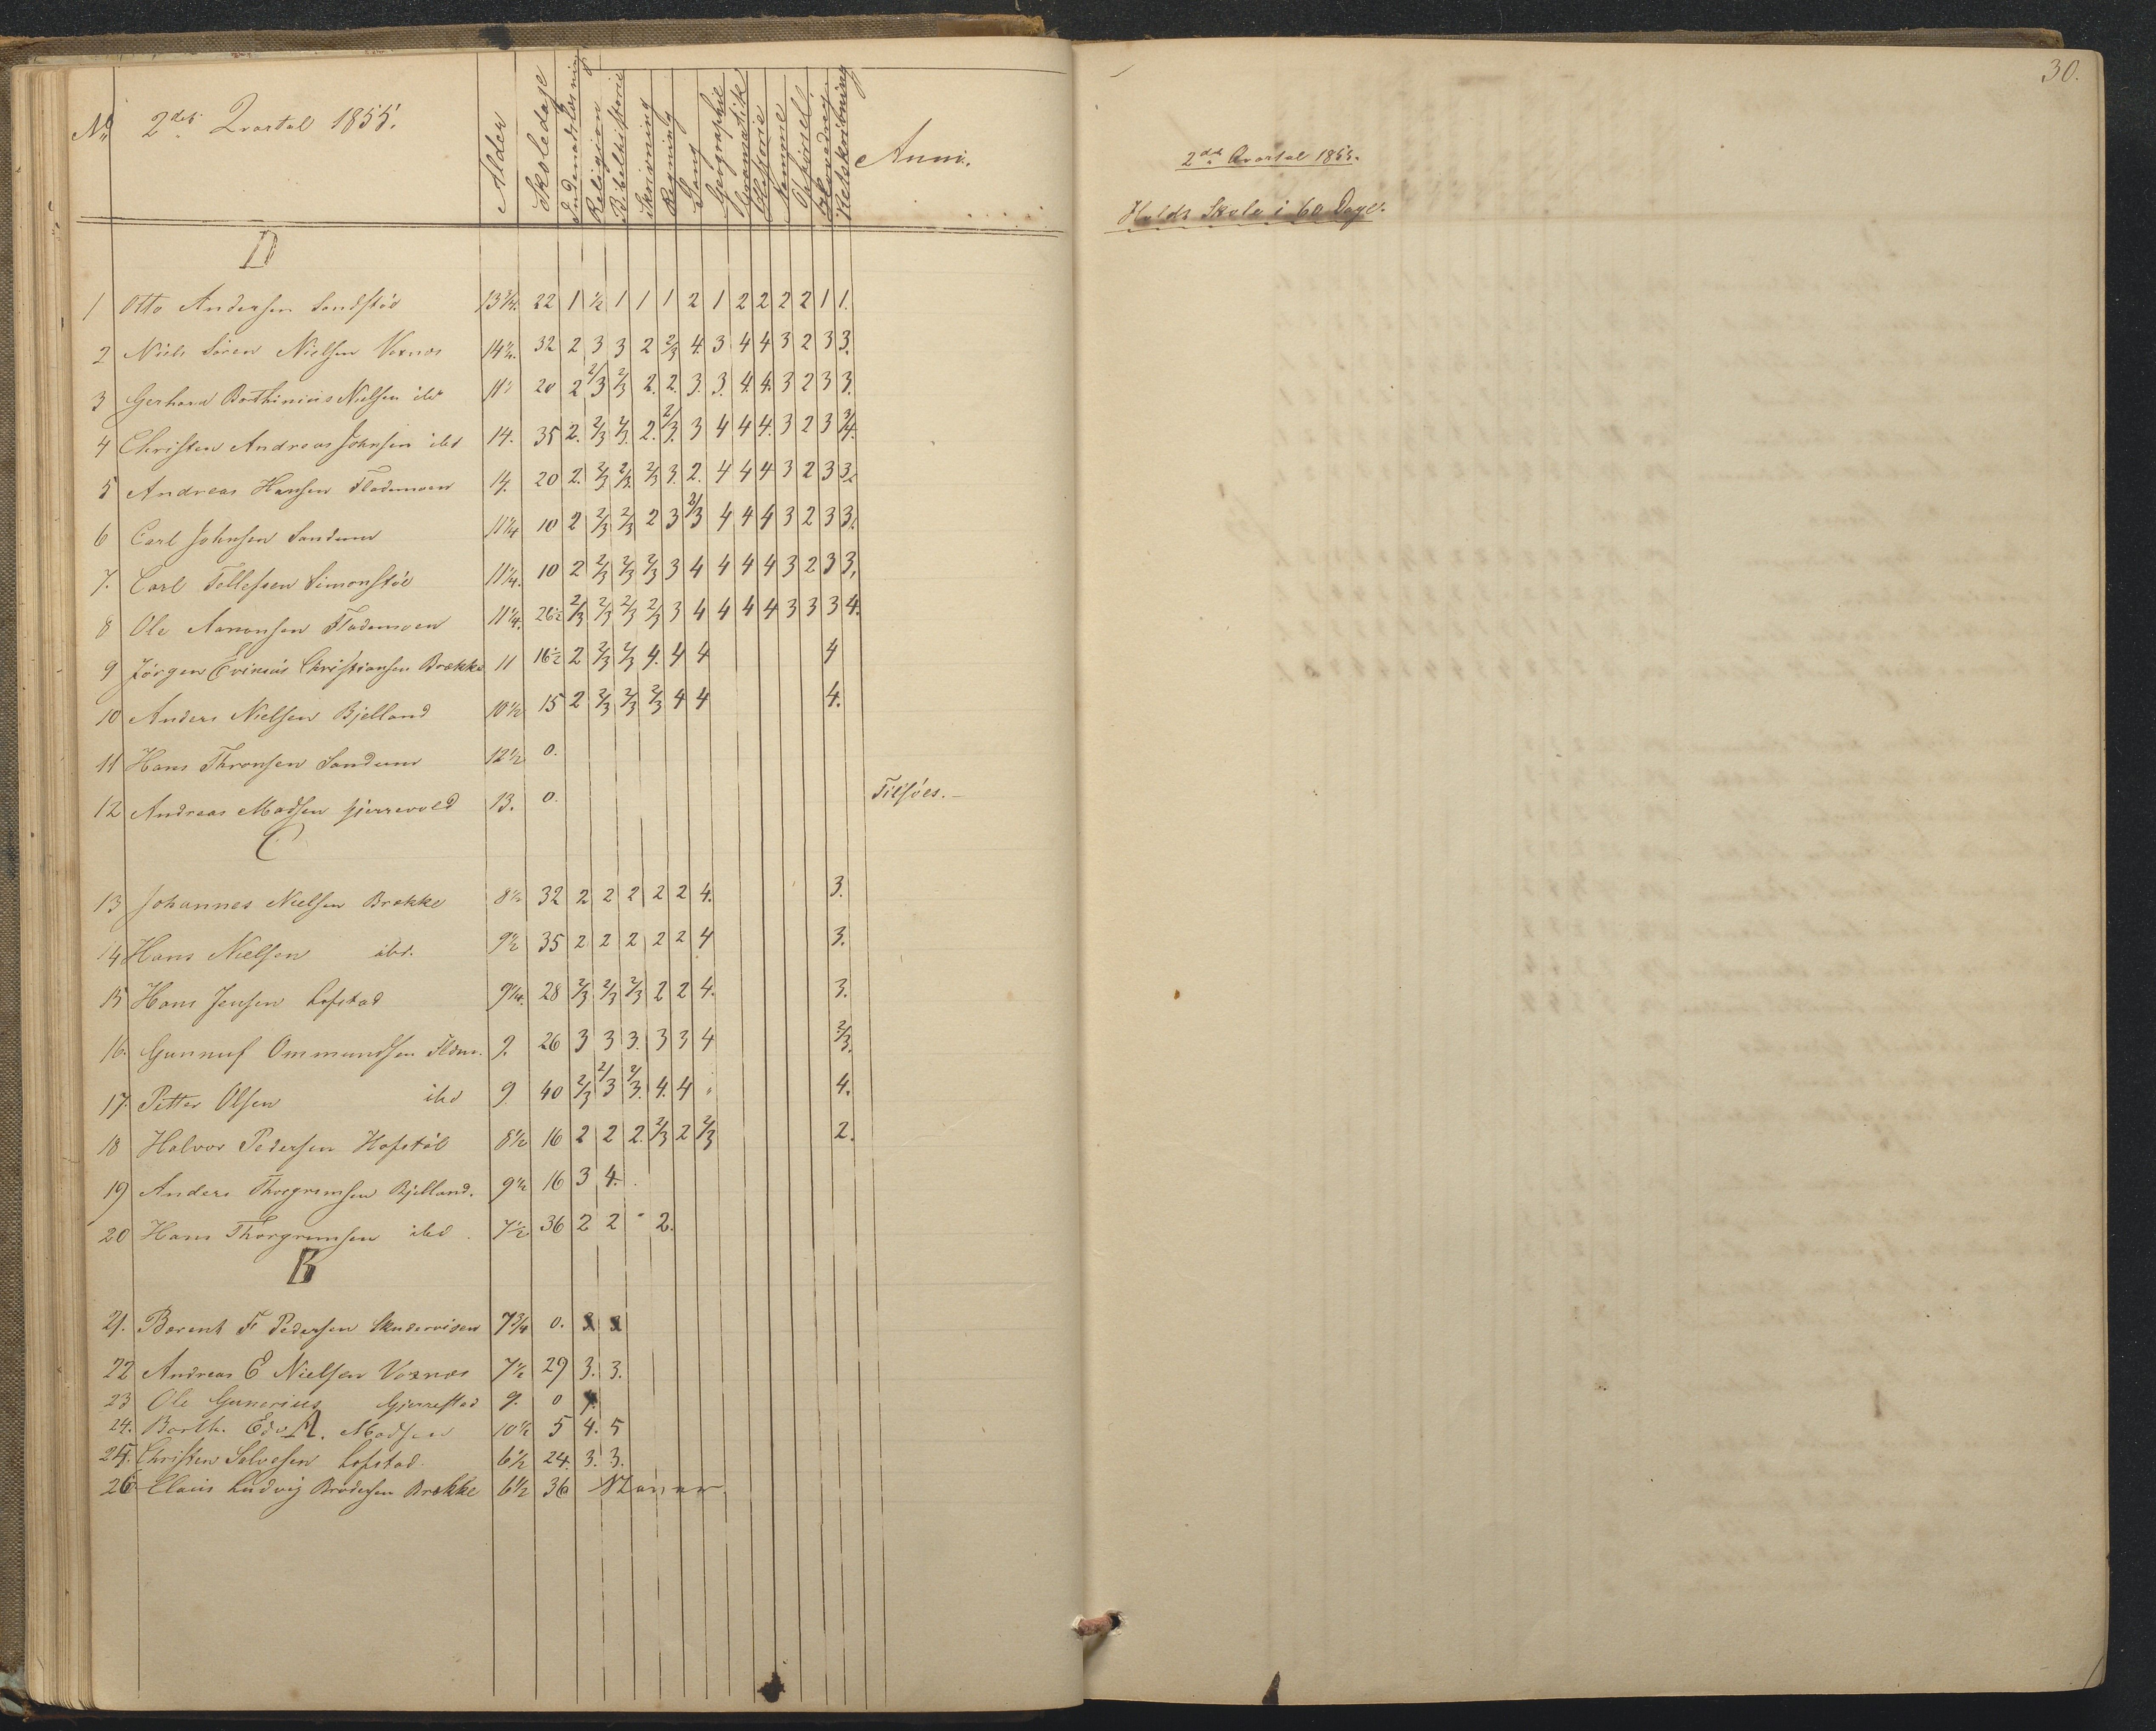 No 2det Qvartal 1855. Alder Skoledage Indenadslæsning Religion Bibelhistorie Skrivning Regning Sang Geographie Gramatik Historie Opførsel Retskrivning Anm.
D
1 Otto Andersen 13 3/4. 22 1 1/2 1 1 1 2 1 2 2 2 2 1 1.
2 Niels Søren Nielsen Voxnæs 14 1/4. 32 2 3 3 2 2/3 4. 3 4 4 3 2 3 3.
3 Gerhard Nielsen ibd 11 20 2 2/3 2/3 2. 2. 3. 3. 4. 4. 3 2 3 3.
4 Christen Andreas Johnsen ibd 14. 35 2. 2/3 2/3. 2. 2/3. 3 4 4 4. 3 2 3 3/4.
5 Andreas Hansen Flademoen 14. 20 2. 2/3 2/3. 2/3 3. 2. 4 4 4 3 2 3 3.
6 Carl Johnsen Sandum 11 1/4 10 2 2/3 2/3 2 3 2/3 4 4 4 3 2 3 3.
7. Carl Tellefsen Simonstøl 11 1/4. 10 2 2/3 2/3 2/3 3 4 4 4 4 3 2 3 3.
8 Ole Aanonsen Flademoen 11 1/4. 26 1/2 2/3 2/3 2/3 2/3 3 4 4 4 4 3 3 3 4.
9 Jörgen Evinius Christiansen Brække 11 16 1/2 2 2/3 2/3 4. 4 4 4
10 Anders Nielsen Bjelland 10 1/2 15 2 2/3 2/3 2/3 4 4 4.
11 Hans Thronsen Sandum 12 1/2 0.
12 Andreas Madsen 13. 0. Tilføies.—
C.
13 Johannes Nielsen Brække 8 1/2 32 2 2 2 2 2 4. 3.
14 Hans Nielsen ibd. 9 1/2 35 2 2 2 2 2 4 3.
15 Hans Jensen Lofstad 9 1/4. 28 2/3 2/3 2/3 2 2 4. 3.
16. Gunnuf Ommundsen Fldm. 9. 26 3 3 3. 3 3 4 2/3.
17. Petter Olsen ibd 9 40 2/3 2/3 2/3. 4. 4 4.
18 Halvor Pedersen Hofstøl 8 1/2 16 2 2 2. 2/3 2 2/3 2.
19 Anders Thorgrimsen Bjelland. 9 1/2 16 3 4.
20 Hans Thorgrimsen ibd. 7 1/2 36 2 2 " 2.
B
21. Berent F Pedersen 7 3/4 0. 3 3
22 Andreas E Nielsen Voxnæs 7 1/2 29 3. 3.
23 Ole Gunerius Gjerrestad 9. 0 4.
24. Barth. Edv. A. Madsen 10 1/2 5 4. 5
25. Christen Salvesen Lofstad. 6 1/2 24. 3. 3.
26 Claus Ludvig Brodersen Brække 6 1/2 36
30.
2det Qvartal 1855.
Holdt Skole i 60 Dage.